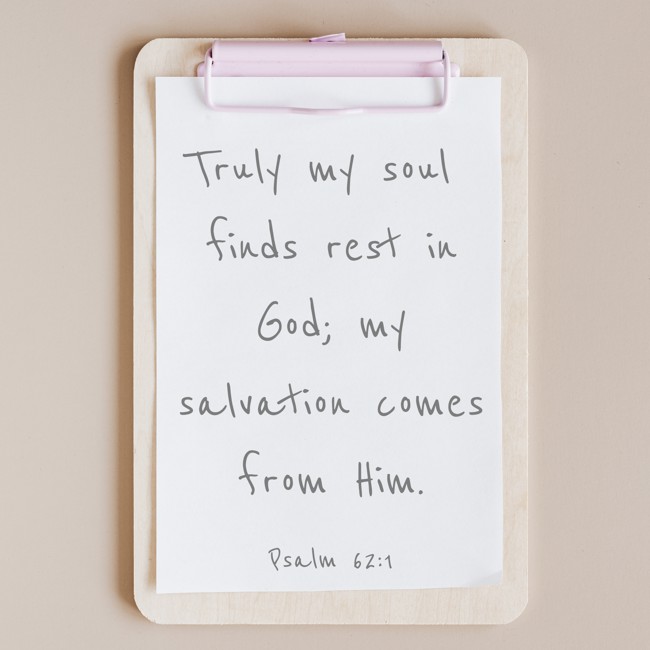 Truly my soul
finds rest in
God; my
salvation comes
from Him.
Psalm 62:1